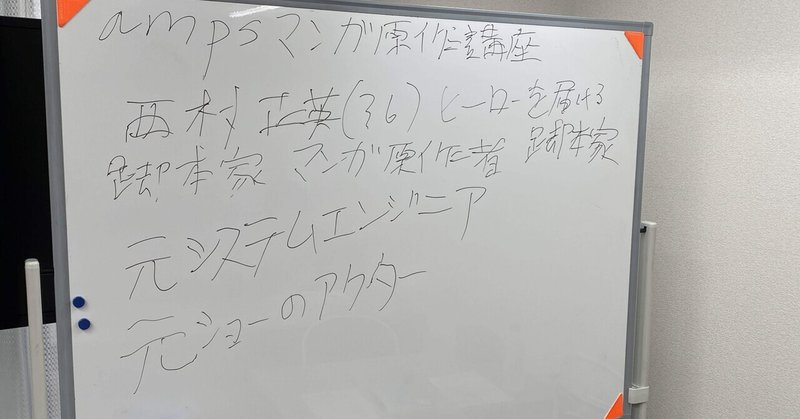 ampsマンガ原作講座
西村 正英(36) ヒーローを届ける
脚本家 マンガ原作者 脚本家
元システムエンジニア
元ショーのアクター